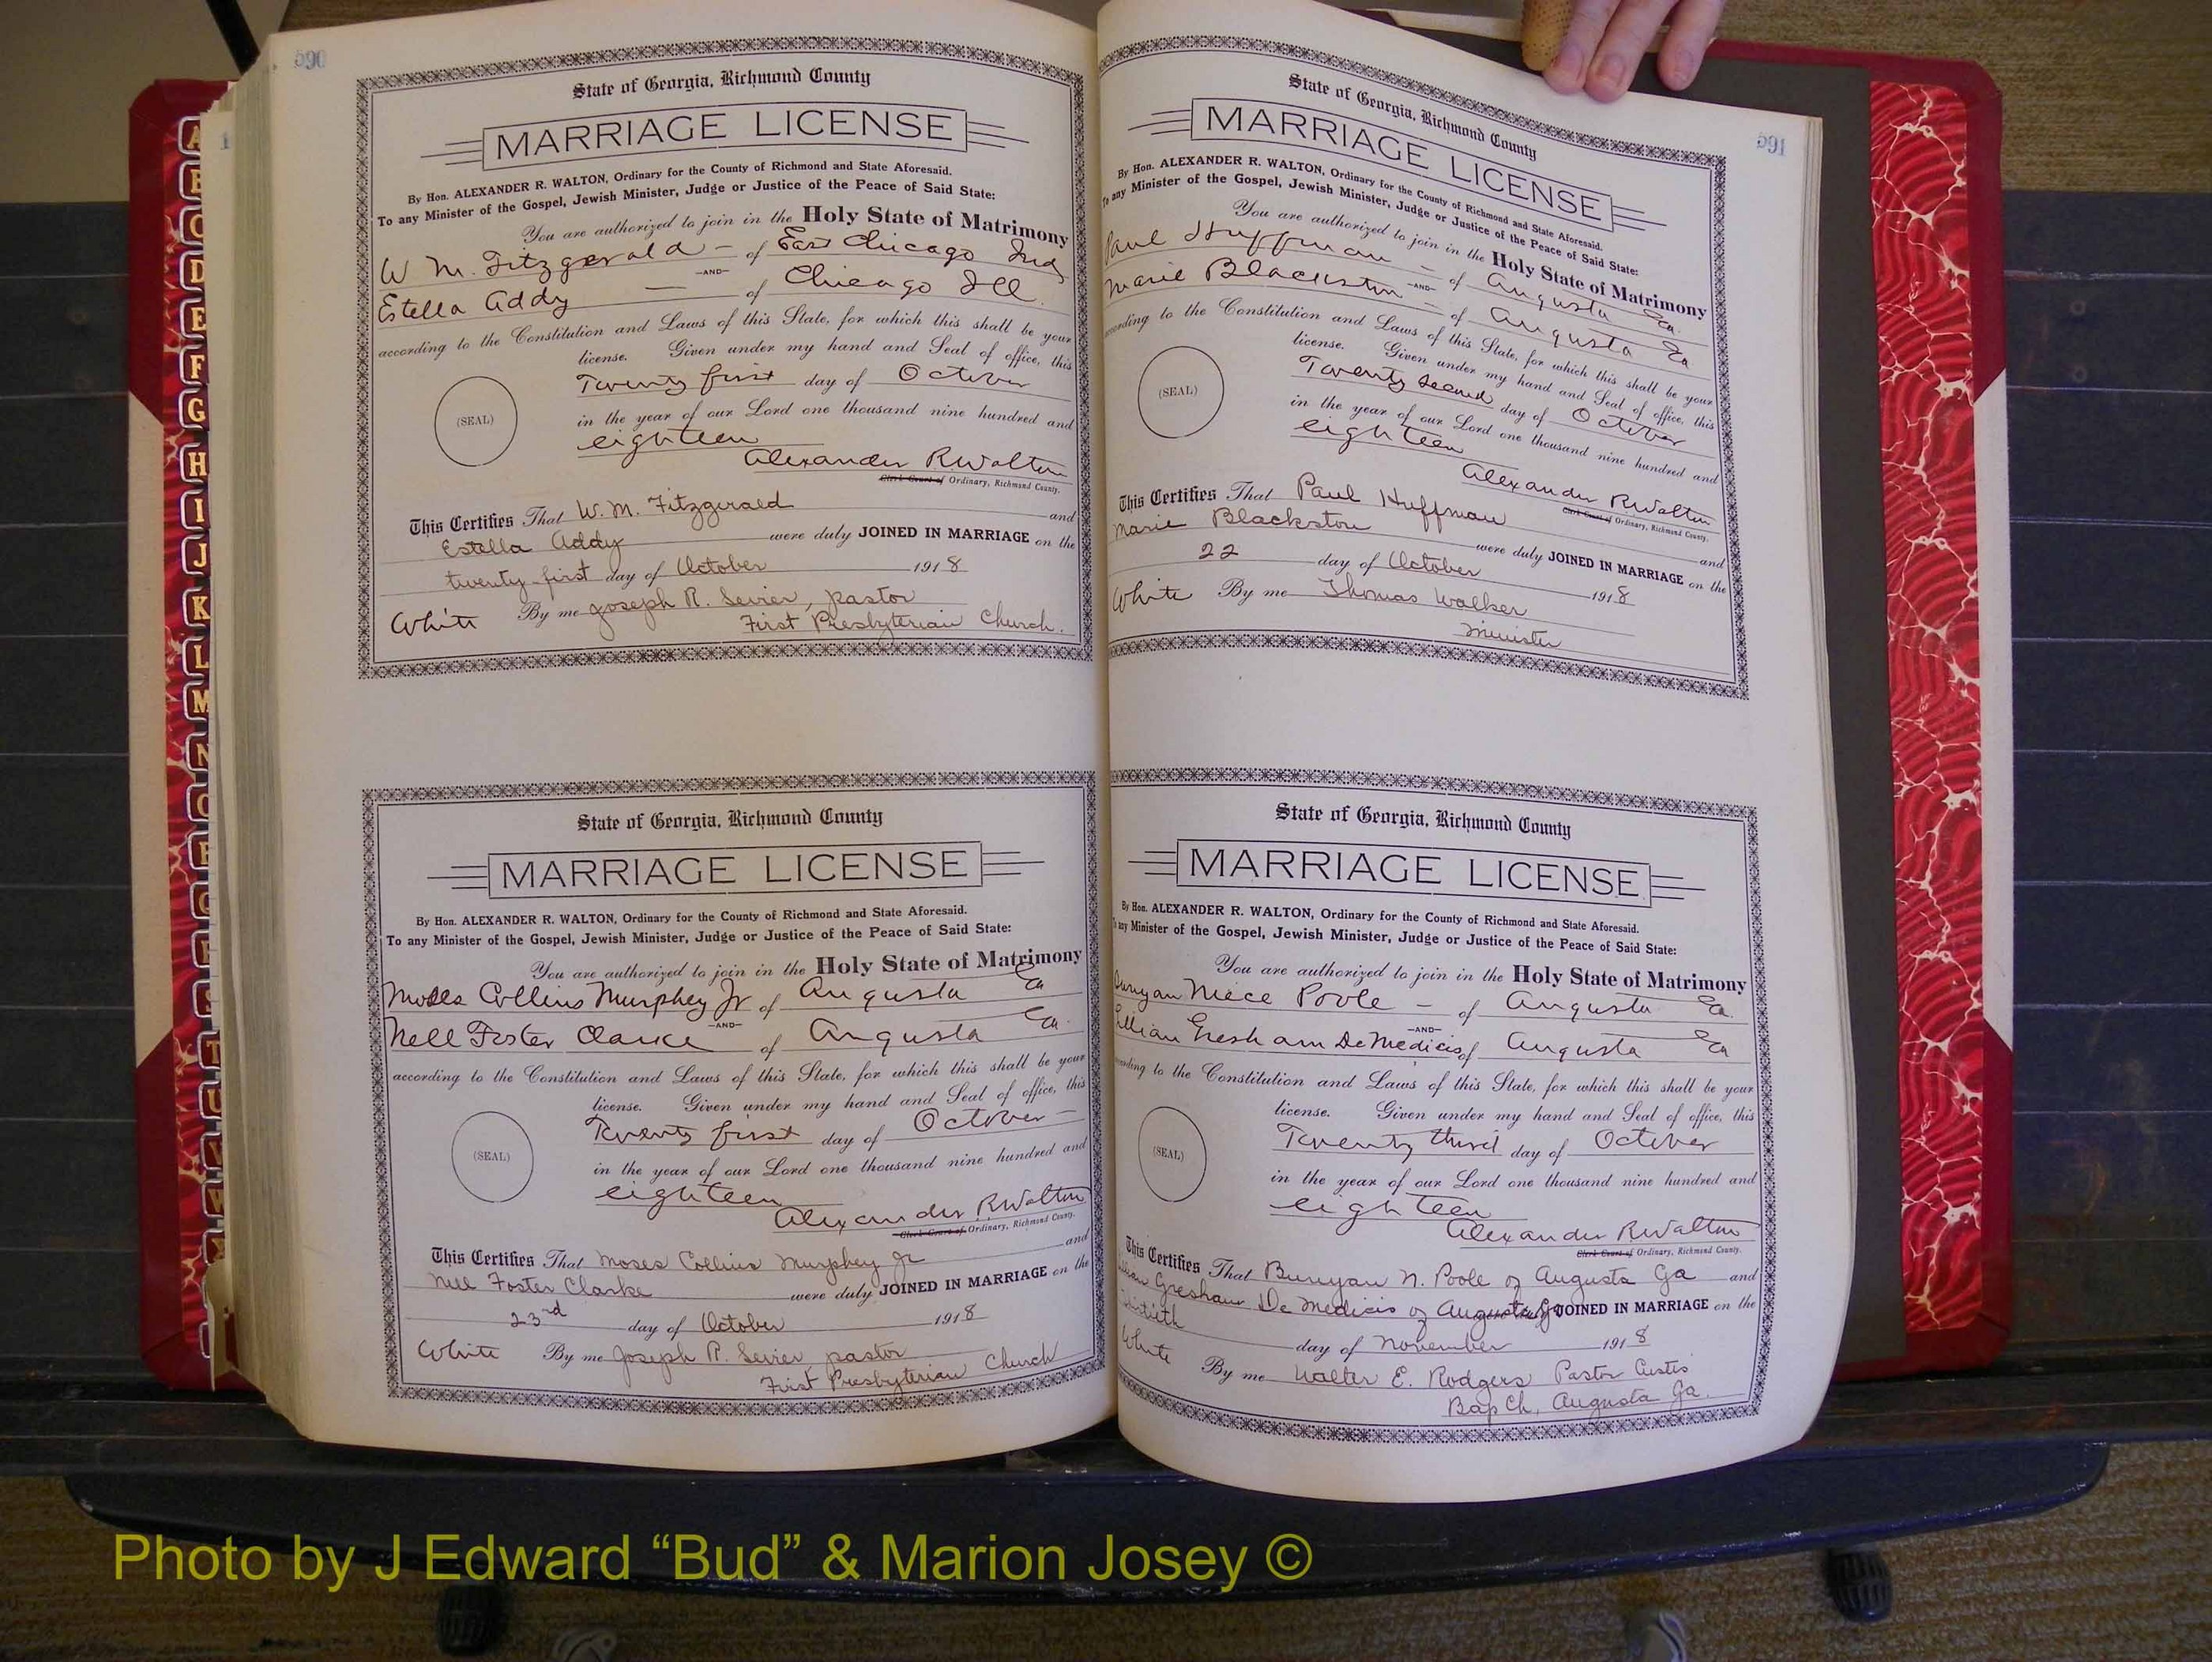 590
State of Georgia, Richmond County
MARRIAGE LICENSE
By Hon. ALEXANDER R. WALTON, Ordinary for the County of Richmond and State Aforesaid.
To any Minister of the Gospel, Jewish Minister, Judge or Justice of the Peace of Said State:
You are authorized to join in the Holy State of Matrimony
W. M. Fitzgerald — of East Chicago Ind
—AND—
Estella Addy — of Chicago Ill.
according to the Constitution and Laws of this State, for which this shall be your
license. Given under my hand and Seal of office, this
Twenty first day of October
(SEAL)
in the year of our Lord one thousand nine hundred and
eighteen
Alexander R Walton
Clerk Court of Ordinary, Richmond County.
This Certifies That W. M. Fitzgerald and
Estella Addy were duly JOINED IN MARRIAGE on the
twenty-first day of October 1918
White By me Joseph R. Sevier, pastor
First Presbyterian Church.
State of Georgia, Richmond County
MARRIAGE LICENSE
By Hon. ALEXANDER R. WALTON, Ordinary for the County of Richmond and State Aforesaid.
To any Minister of the Gospel, Jewish Minister, Judge or Justice of the Peace of Said State:
You are authorized to join in the Holy State of Matrimony
Moses Collins Murphey Jr of Augusta Ga
—AND—
Nell Foster Clarke of Augusta Ga.
according to the Constitution and Laws of this State, for which this shall be your
license. Given under my hand and Seal of office, this
Twenty first day of October —
(SEAL)
in the year of our Lord one thousand nine hundred and
eighteen
Alexander R Walton
Clerk Court of Ordinary, Richmond County.
This Certifies That Moses Collins Murphey Jr and
Nell Foster Clarke were duly JOINED IN MARRIAGE on the
23rd day of October 1918
White By me Joseph R. Sevier, pastor
First Presbyterian Church
591
State of Georgia, Richmond County
MARRIAGE LICENSE
By Hon. ALEXANDER R. WALTON, Ordinary for the County of Richmond and State Aforesaid.
To any Minister of the Gospel, Jewish Minister, Judge or Justice of the Peace of Said State:
You are authorized to join in the Holy State of Matrimony
Paul Huffman — of Augusta Ga.
—AND—
Marie Blackston — of Augusta Ga
according to the Constitution and Laws of this State, for which this shall be your
license. Given under my hand and Seal of office, this
Twenty second day of October
(SEAL)
in the year of our Lord one thousand nine hundred and
eighteen
Alexander R Walton
Clerk Court of Ordinary, Richmond County.
This Certifies That Paul Huffman and
Marie Blackston were duly JOINED IN MARRIAGE on the
22 day of October 1918
White By me Thomas Walker
Minister
State of Georgia, Richmond County
MARRIAGE LICENSE
By Hon. ALEXANDER R. WALTON, Ordinary for the County of Richmond and State Aforesaid.
any Minister of the Gospel, Jewish Minister, Judge or Justice of the Peace of Said State:
You are authorized to join in the Holy State of Matrimony
Bunyan Niece Poole — of Augusta Ga.
—AND—
Lillian Gresham DeMedicis of Augusta Ga
according to the Constitution and Laws of this State, for which this shall be your
license. Given under my hand and Seal of office, this
Twenty third day of October
(SEAL)
in the year of our Lord one thousand nine hundred and
eighteen
Alexander R Walton
Clerk Court of Ordinary, Richmond County.
This Certifies That Bunyan N. Poole of Augusta Ga and
Lillian Gresham De Medicis of Augusta Ga JOINED IN MARRIAGE on the
Thirtieth day of November 1918
White By me Walter E. Rodgers Pastor Curtis
Bap Ch. Augusta Ga.
A
B
C
D
E
F
G
H
I
J
K
L
M
N
O
P
Q
R
S
T
U
V
W
Photo by J Edward “Bud” & Marion Josey ©